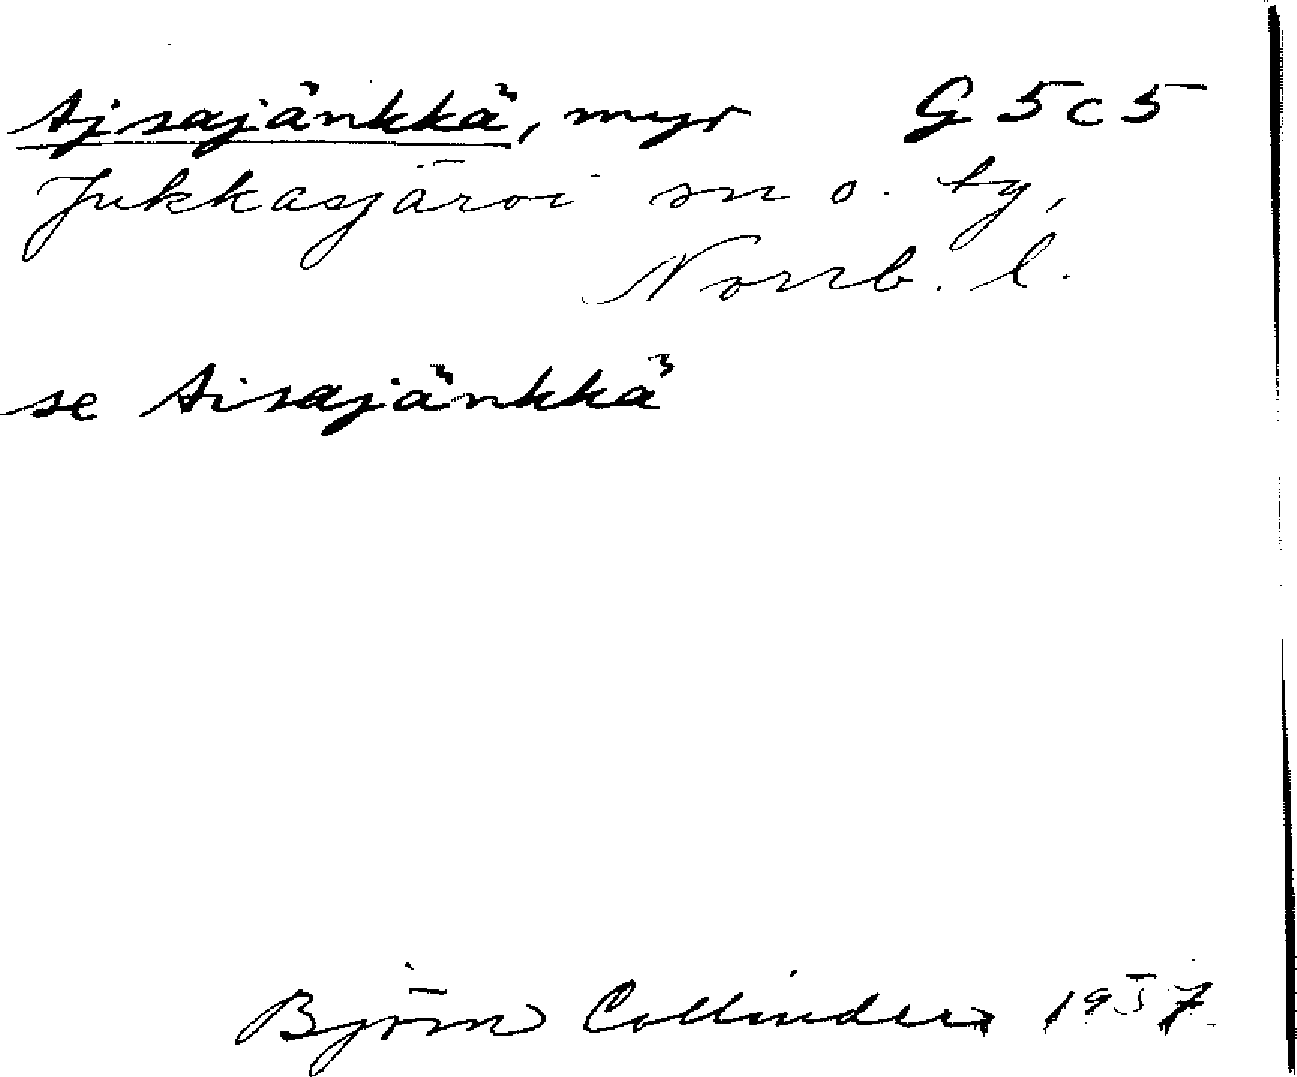 Ajsajänkkä, myr G 5 c 5
Jukkasjärvi sn o. tg,
Norrb. l.
se Aisajänkkä
Björn Collinder 1957